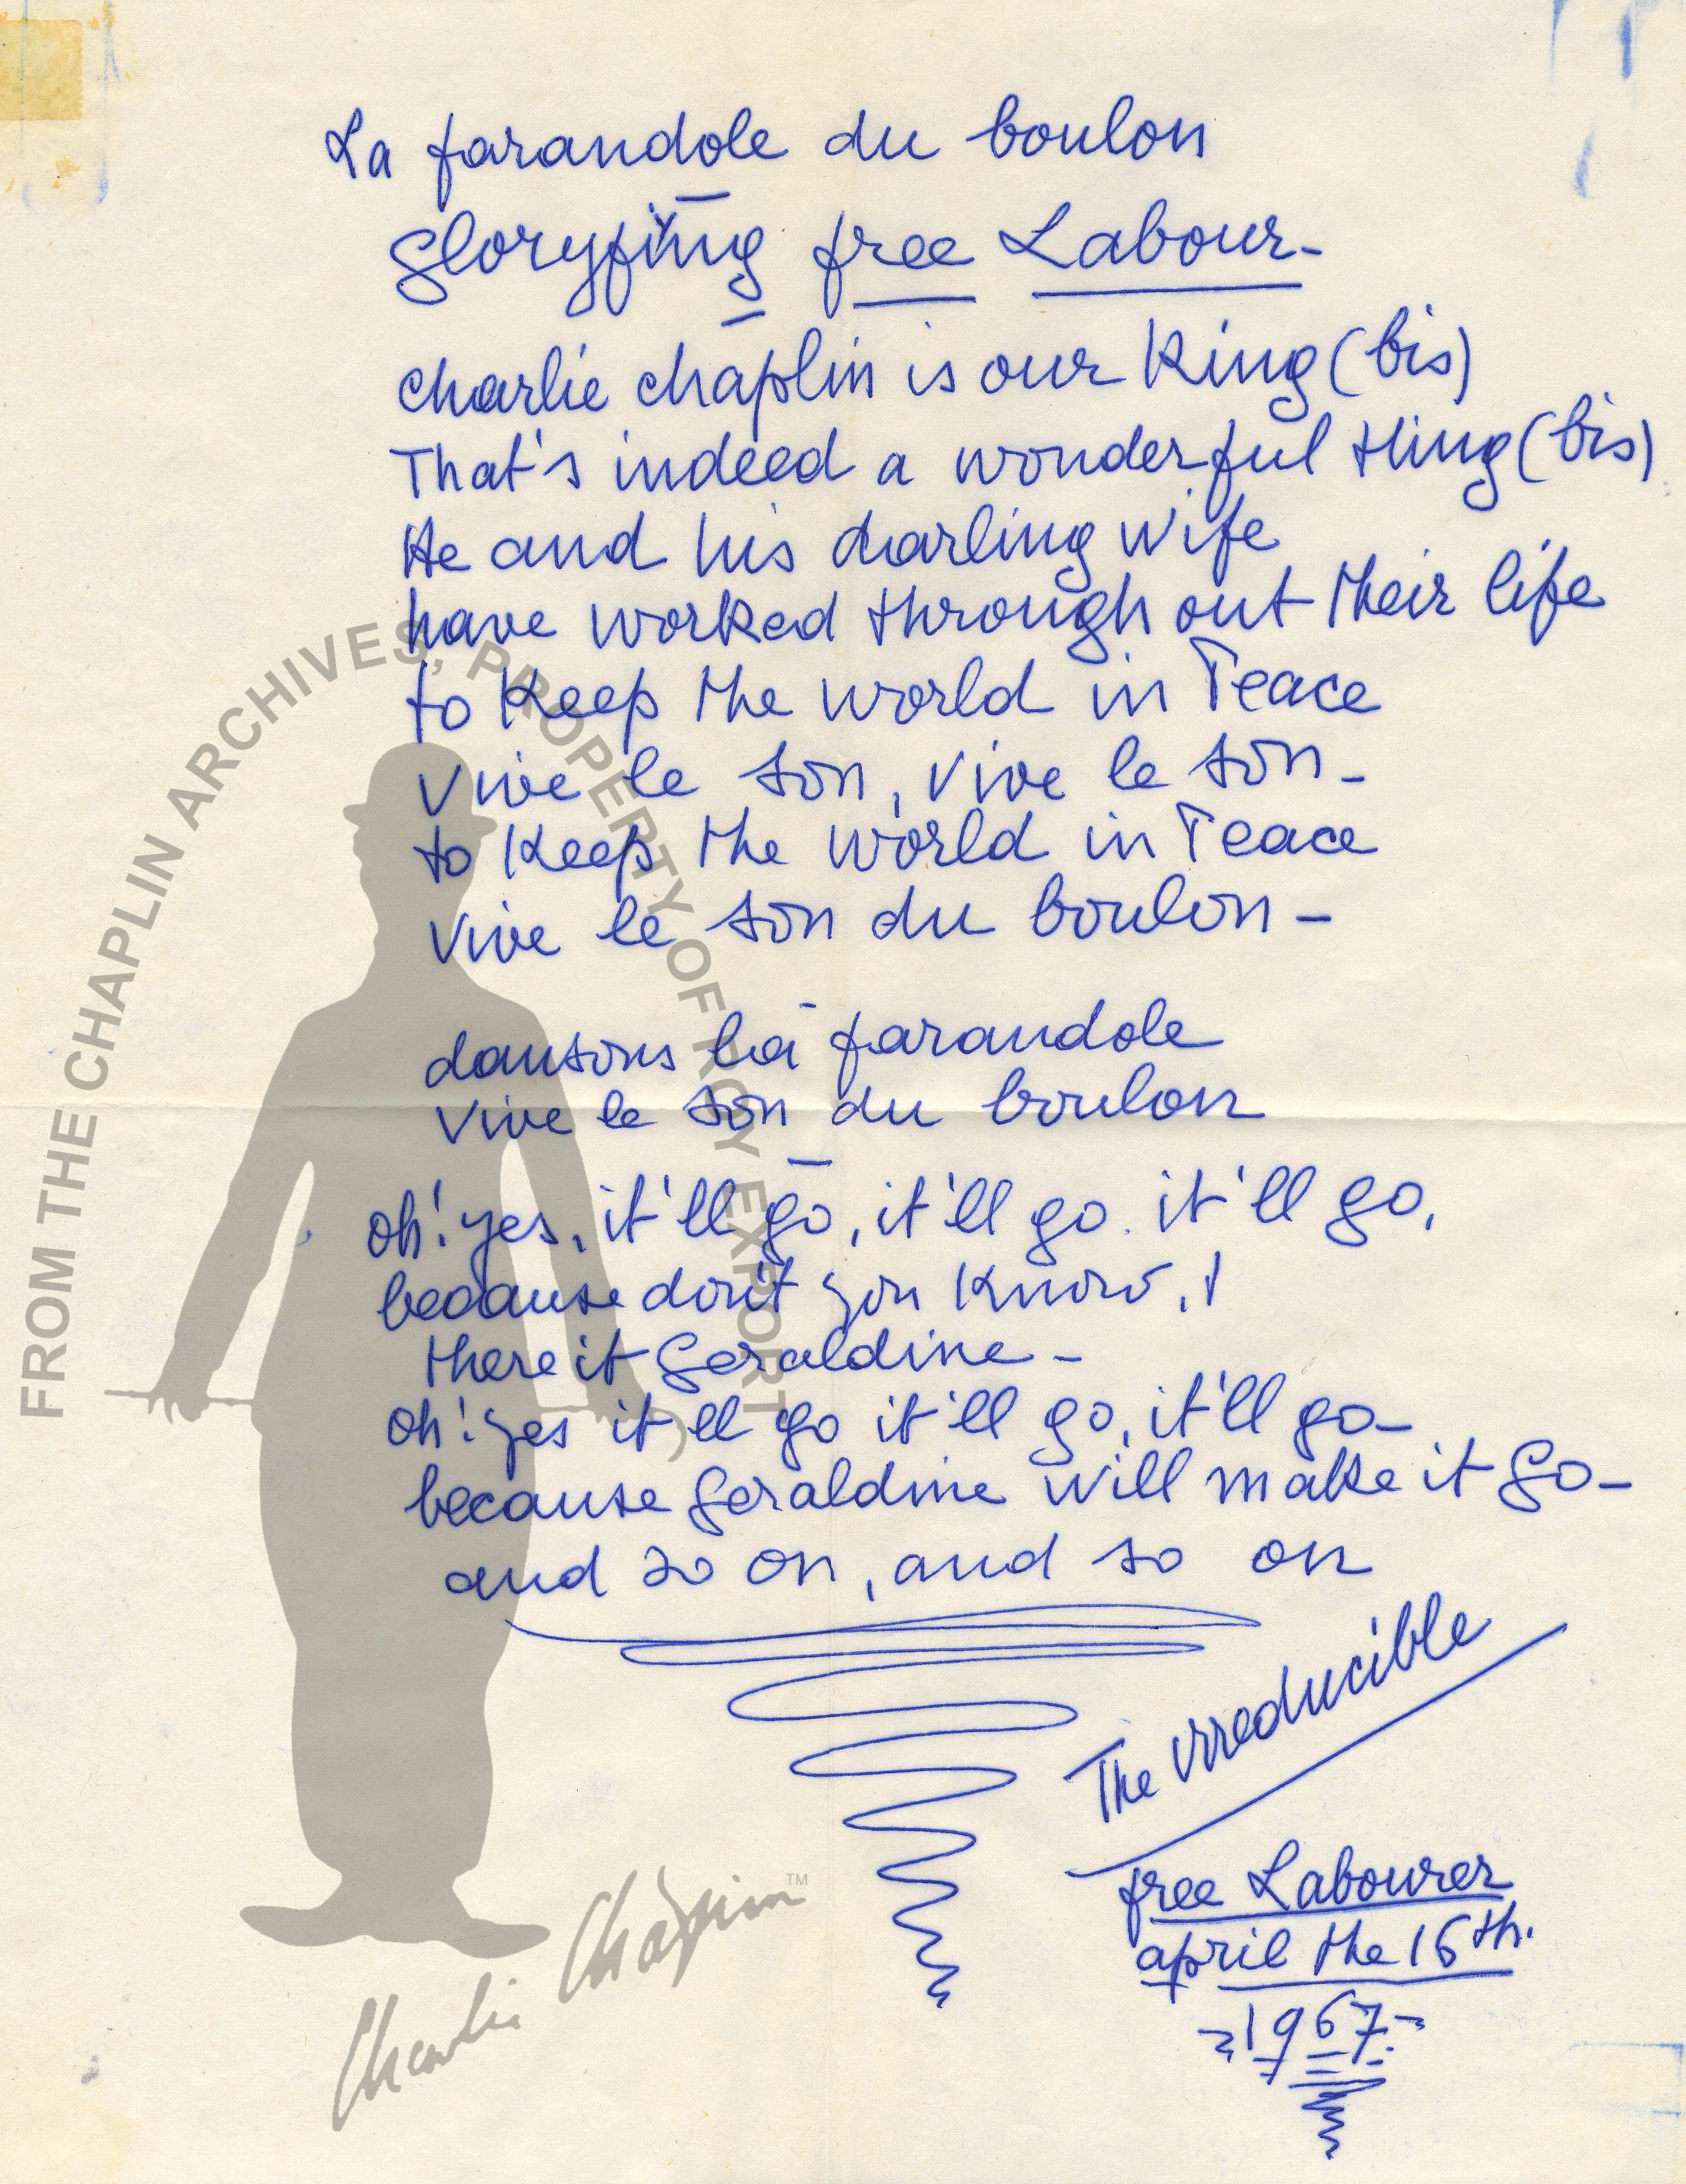 La farandole du boulon
Gloryfing free Labour-
charlie chaplin is our King (bis)
That's indeed a wonderful thing (bis)
He and his darling wife
have worked through out their life
to Keep the world in Peace
Vive le son, vive le son-
to Keep the world in Peace
Vive le son du boulon-
dansons la farandole
Vive le son du boulon
oh! yes, it'll go, it'll go. it'll go,
because don't you Know,
there it Geraldine-
oh! yes it'll go it'll go, it'll go-
because Geraldine will make it Go-
and so on, and so on
The irreducible
free Labourer
april the 16th.
1967
FROM THE CHAPLIN ARCHIVES, PROPERTY OF ROY EXPORT
Charlie Chaplin TM